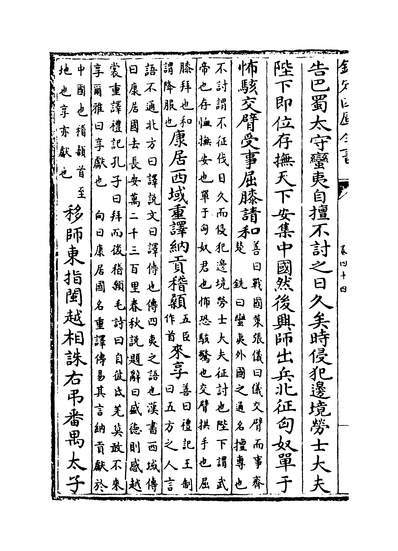 欽定四庫全書
卷四十四
告巴蜀太守蠻夷自擅不討之日久矣時侵犯邊境勞士大夫
陛下即位存撫天下安集中國然後興師出兵北征匈奴單于
怖駭交臂受事屈膝請和善曰戰國策張儀曰儀交臂而事秦
楚 銑曰蠻夷外國之通名擅專也
不討謂不征伐日久而侵犯邊境勞士大夫征討也陛下謂武
帝也存恤撫安也單于匈奴君也怖恐駭驚也交臂拱手也屈
膝拜也和
謂降服也
康居西域重譯納貢稽顙五臣作首來享善曰禮記王制
曰五方之人言
語不通北方曰譯説文曰譯傳也傳四夷之語也漢書西域傳
曰康居國去長安萬二千三百里春秋説題辭曰盛德則感越
裳重譯禮記孔子曰拜而後稽顙毛詩曰自彼氐羌莫敢不來
享爾雅曰享獻也 向曰康居國名重譯傳易其言納貢獻於
中國也稽顙首至
地也享亦獻也
移師東指閩越相誅右弔番禺太子